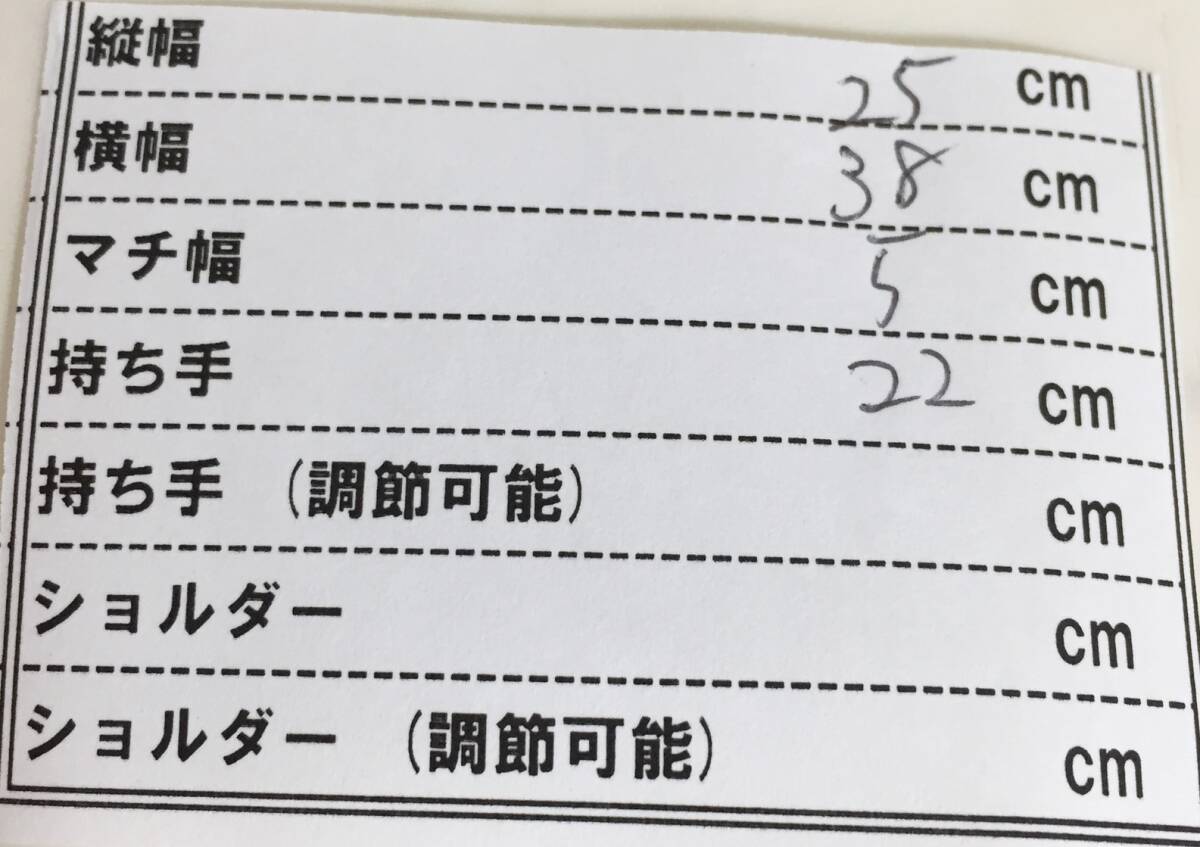 縦幅 25 cm
横幅 38 cm
マチ幅 5 cm
持ち手 22 cm
持ち手 (調節可能) cm
ショルダー cm
ショルダー (調節可能) cm